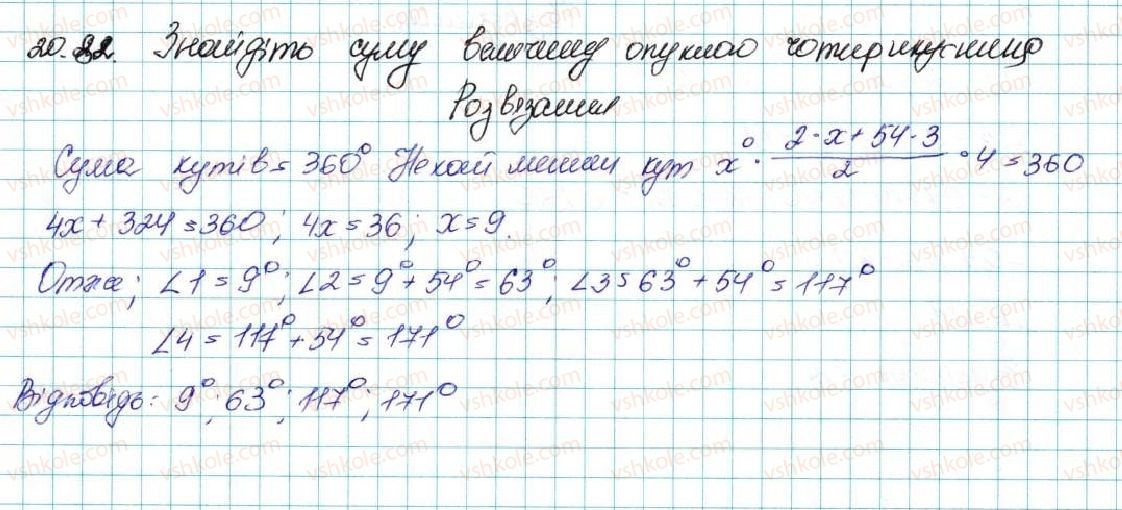 20.22. Знайдіть суму величину опуклого чотирикутника
Розвязання
Сума кутів = 360° Нехай менший кут x° · (2·x + 54·3)/2 · 4 = 360
4x + 324 = 360; 4x = 36; x = 9.
Отже; ∠1 = 9°; ∠2 = 9° + 54° = 63°; ∠3 = 63° + 54° = 117°
∠4 = 117° + 54° = 171°
Відповідь: 9°; 63°; 117°; 171°